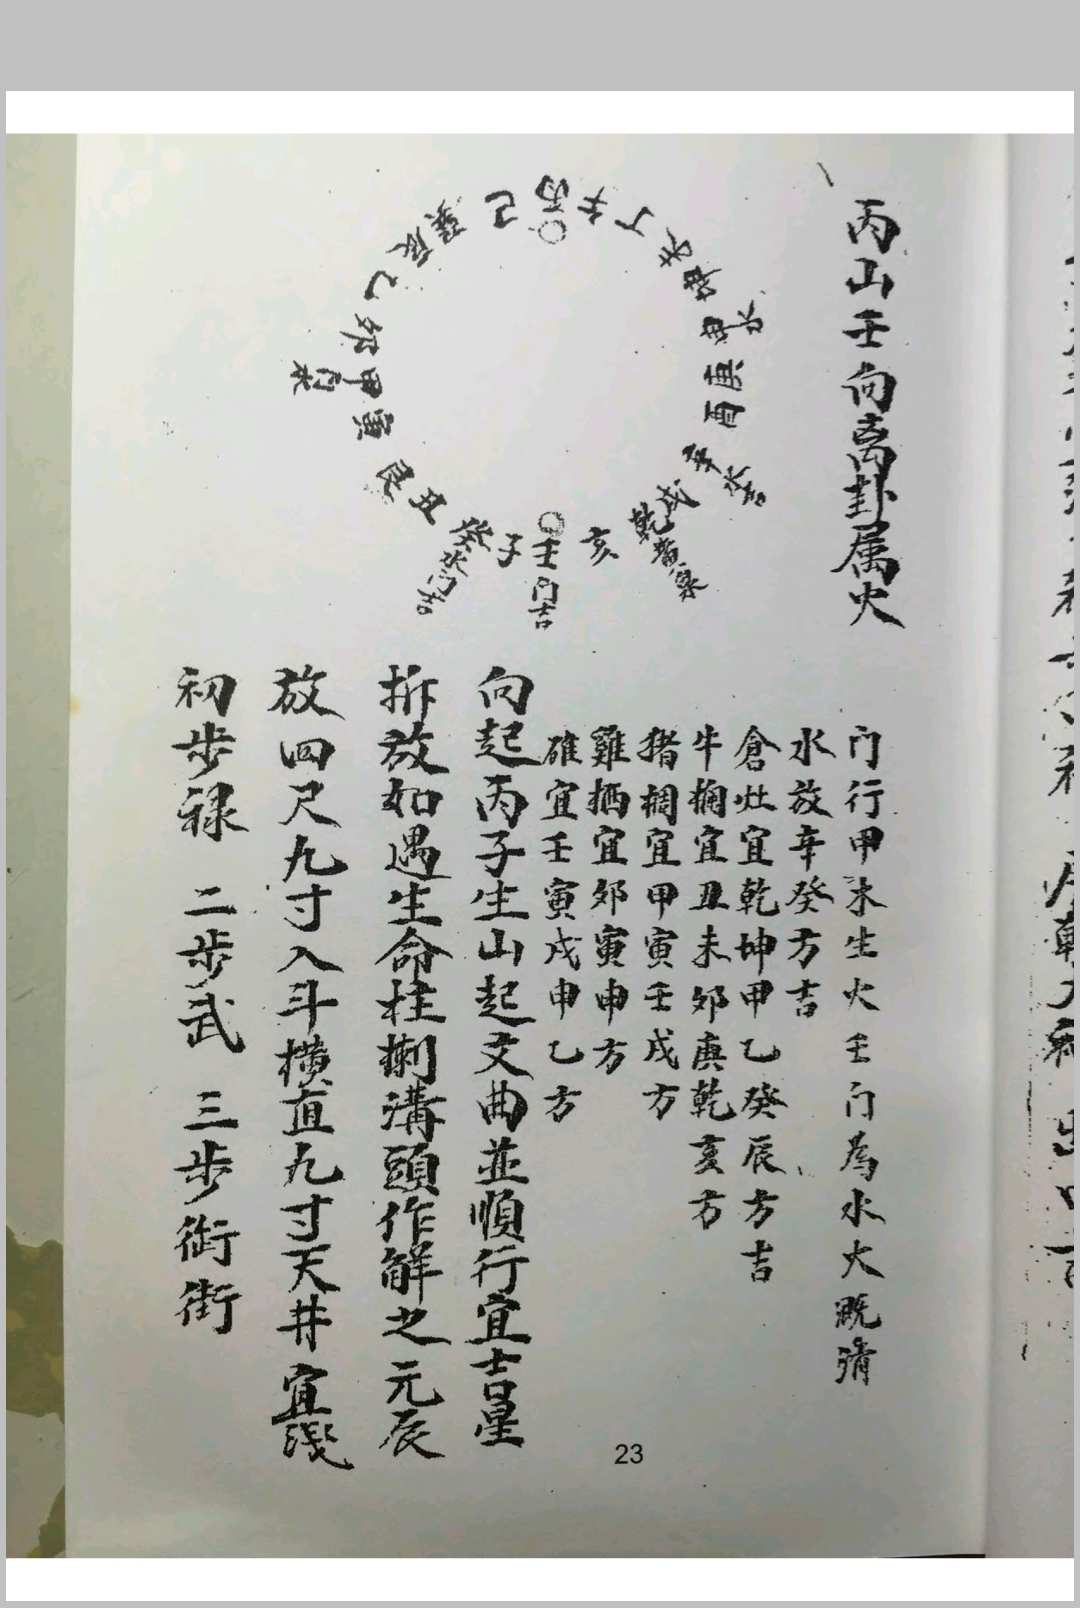 丙山壬向离卦属火
丙
午
丁
未
坤
申水
庚
酉
辛水吉
戌
乾黄泉
亥
壬门吉
子
癸水门吉
丑
艮
寅
甲门水
卯
乙
辰
巽
己
门行甲木生火壬门為水火溉濟
水放辛癸方吉
倉灶宜乾坤甲乙癸辰方吉
牛椆宜丑未卯庚乾亥方
猪椆宜甲寅壬戌方
雞栖宜卯寅申方
碓宜壬寅戌申乙方
向起丙子生山起文曲並順行宜吉星
拆放如遇生命柱捌溝頭作解之元辰
放四尺九寸入斗横直九寸天井宜淺
初步禄 二步武 三步街街
23